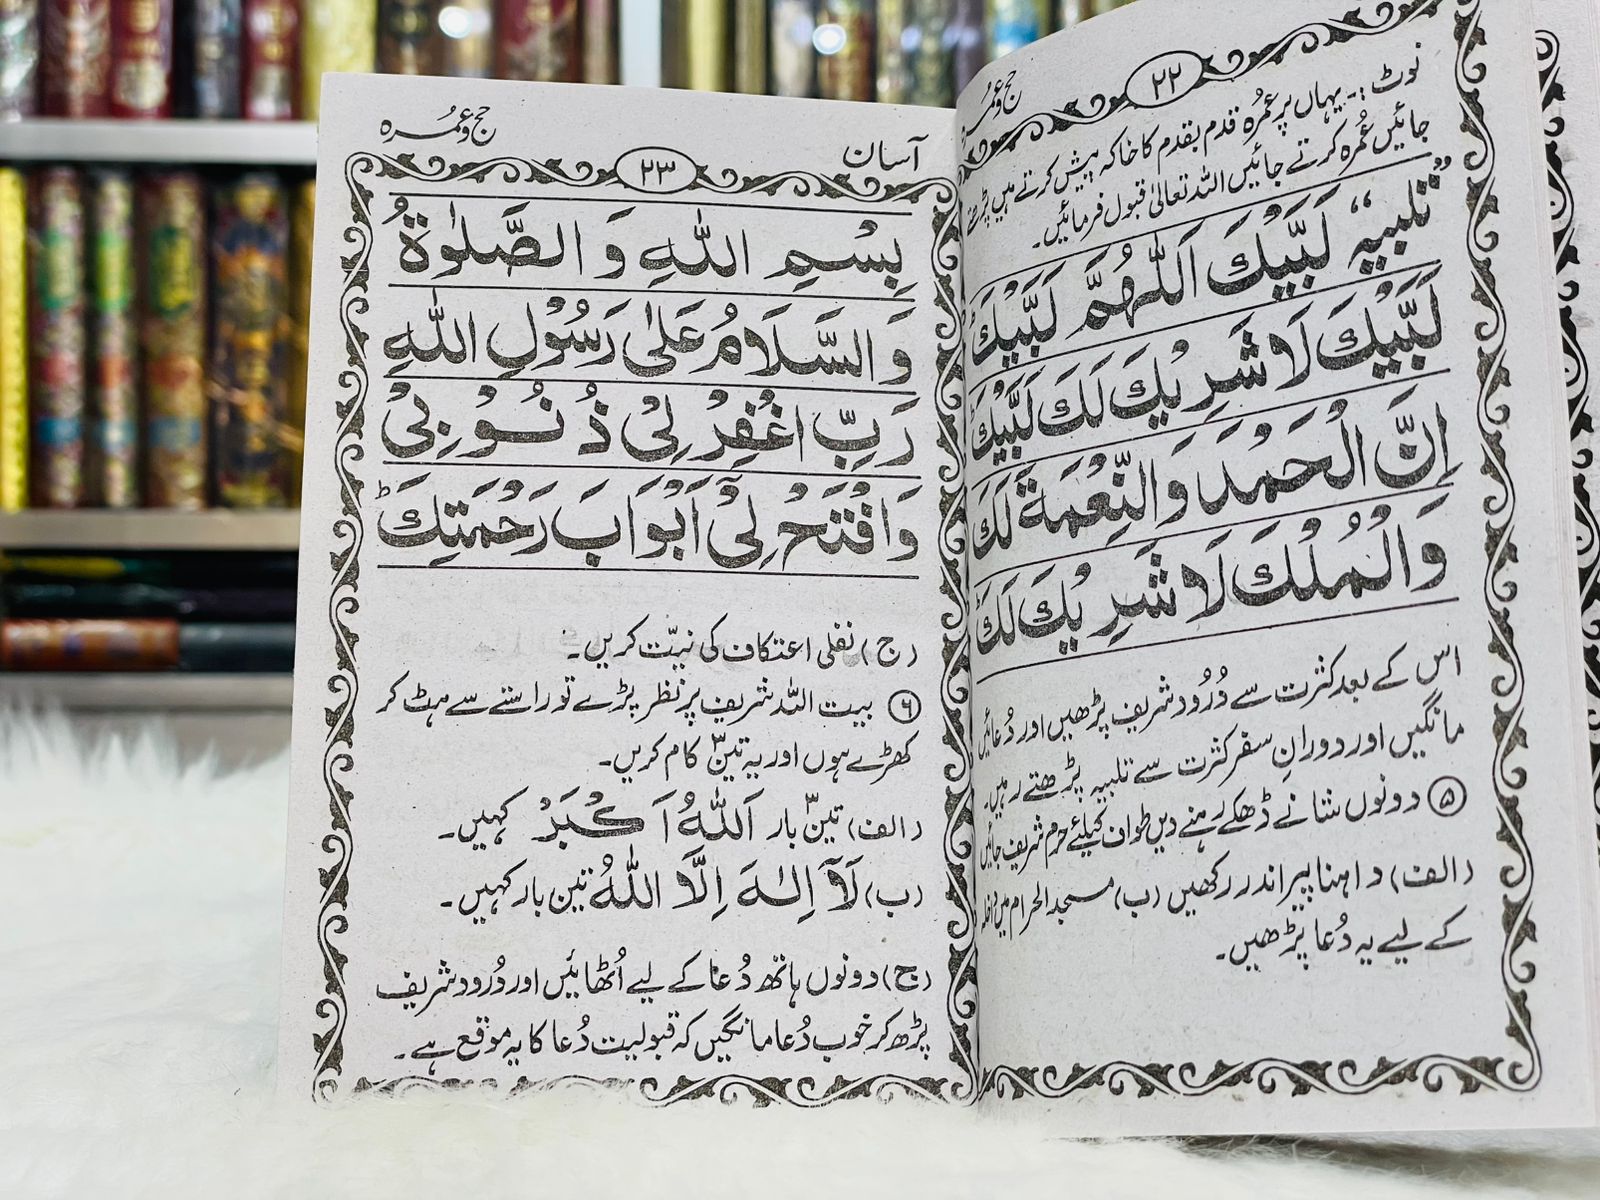 حج و عمرہ
۲۲
نوٹ :۔ یہاں پر عمُرہ قدم بقدم کا خاکہ پیش کرتے ہیں پڑھتے
جائیں عُمرہ کرتے جائیں اللہ تعالیٰ قبول فرمائیں۔
”تلبیہ“ لَبَّيْكَ اَللّٰهُمَّ لَبَّيْكَ
لَبَّيْكَ لَا شَرِيْكَ لَكَ لَبَّيْكَ
اِنَّ الْحَمْدَ وَالنِّعْمَةَ لَكَ
وَالْمُلْكَ لَا شَرِيْكَ لَكَ
اس کے بعد کثرت سے دُرُود شریف پڑھیں اور دُعائیں
مانگیں اور دورانِ سفر کثرت سے تلبیہ پڑھتے رہیں۔
۵ دونوں شانے ڈھکے رہنے دیں طواف کیلئے حرم شریف جائیں
(الف) داہنا پیر اندر رکھیں (ب) مسجد الحرام میں داخلہ
کے لیے یہ دُعا پڑھیں۔
آسان
۲۳
حج و عمُرہ
بِسْمِ اللّٰهِ وَ الصَّلٰوةُ
وَالسَّلَامُ عَلٰى رَسُوْلِ اللّٰهِ
رَبِّ اغْفِرْ لِىْ ذُنُوْبِىْ
وَافْتَحْ لِىْ اَبْوَابَ رَحْمَتِكَ
(ج) نفلی اعتکاف کی نیّت کریں۔
۶ بیت اللہ شریف پر نظر پڑے تو راستے سے ہٹ کر
کھڑے ہوں اور یہ تین۳ کام کریں۔
(الف) تین۳ بار اَللّٰهُ اَكْبَرْ کہیں۔
(ب) لَآ اِلٰـهَ اِلَّا اللّٰهُ تین بار کہیں۔
(ج) دونوں ہاتھ دُعا کے لیے اُٹھائیں اور دُرود شریف
پڑھ کر خوب دُعا مانگیں کہ قبولیت دُعا کا یہ موقع ہے۔